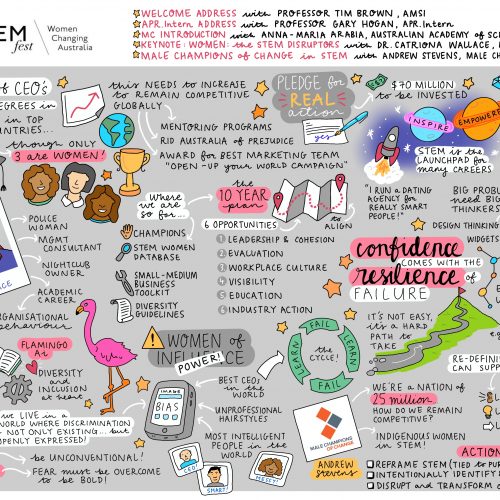 EM
fest
Women
Changing
Australia
WELCOME ADDRESS with PROFESSOR TIM BROWN, AMSI
APR.Intern ADDRESS with PROFESSOR GARY HOGAN, APR.Intern
MC INTRODUCTION with ANNA-MARIA ARABIA, AUSTRALIAN ACADEMY of SC
KEYNOTE: WOMEN: the STEM DISRUPTORS with DR. CATRIONA WALLACE,
MALE CHAMPIONS of CHANGE in STEM with ANDREW STEVENS, MALE CH
of CEO's
EGREES in
in TOP
NTRIES...
though ONLY
3 are WOMEN!
this NEEDS to INCREASE
to REMAIN COMPETITIVE
GLOBALLY
MENTORING PROGRAMS
RID AUSTRALIA of PREJUDICE
AWARD for BEST MARKETING TEAM
"OPEN-UP your WORLD CAMPAIGN"
PLEDGE for
REAL
action
yes
$70 MILLION
to be INVESTED
INSPIRE
EMPOWER
STEM is the
LAUNCHPAD for
many CAREERS
"I RUN a DATING
AGENCY for
REALLY SMART
PEOPLE!"
BIG PROBL
need BIG
THINKERS
DESIGN THINKING
WIDGETS
POLICE
WOMAN
MGMT
CONSULTANT
NIGHTCLUB
OWNER
ACADEMIC
CAREER
ORGANISATIONAL
behaviour
Where
we are
so far...
CHAMPIONS
STEM WOMEN
DATABASE
SMALL-MEDIUM
BUSINESS
TOOLKIT
DIVERSITY
GUIDELINES
the
10 YEAR
plan
6 OPPORTUNITIES
to
ALIGN
1 LEADERSHIP & COHESION
2 EVALUATION
3 WORKPLACE CULTURE
4 VISIBILITY
5 EDUCATION
6 INDUSTRY ACTION
confidence
COMES WITH THE
resilience of
FAILURE
IT'S NOT EASY,
it's a HARD
PATH to
TAKE
RE-DEFIN
CAN SUPP
FLAMINGO
Ai
DIVERSITY
and
INCLUSION
at scale
WOMEN of
INFLUENCE
POWER!
IMAGE
BIAS
BEST CEO's
in the
WORLD
UNPROFESSIONAL
HAIRSTYLES
MOST INTELLIGENT
PEOPLE in the
WORLD
CEO
SMART
MESSY!
FAIL
LEARN
FAIL
LEARN
the
CYCLE!
MALE CHAMPIONS
OF CHANGE
ANDREW
Stevens
WE'RE a NATION of
25 million
HOW DO WE REMAIN
COMPETITIVE?
INDIGENOUS WOMEN
in STEM!
we LIVE in a
WORLD WHERE DISCRIMINATION
NOT ONLY EXISTING... but
OPENLY EXPRESSED!
be UNCONVENTIONAL!
FEAR must be OVERCOME
to be BOLD!
ACTION
REFRAME STEM (TIED to PU
INTENTIONALLY IDENTIFY
DISRUPT and TRANSFORM